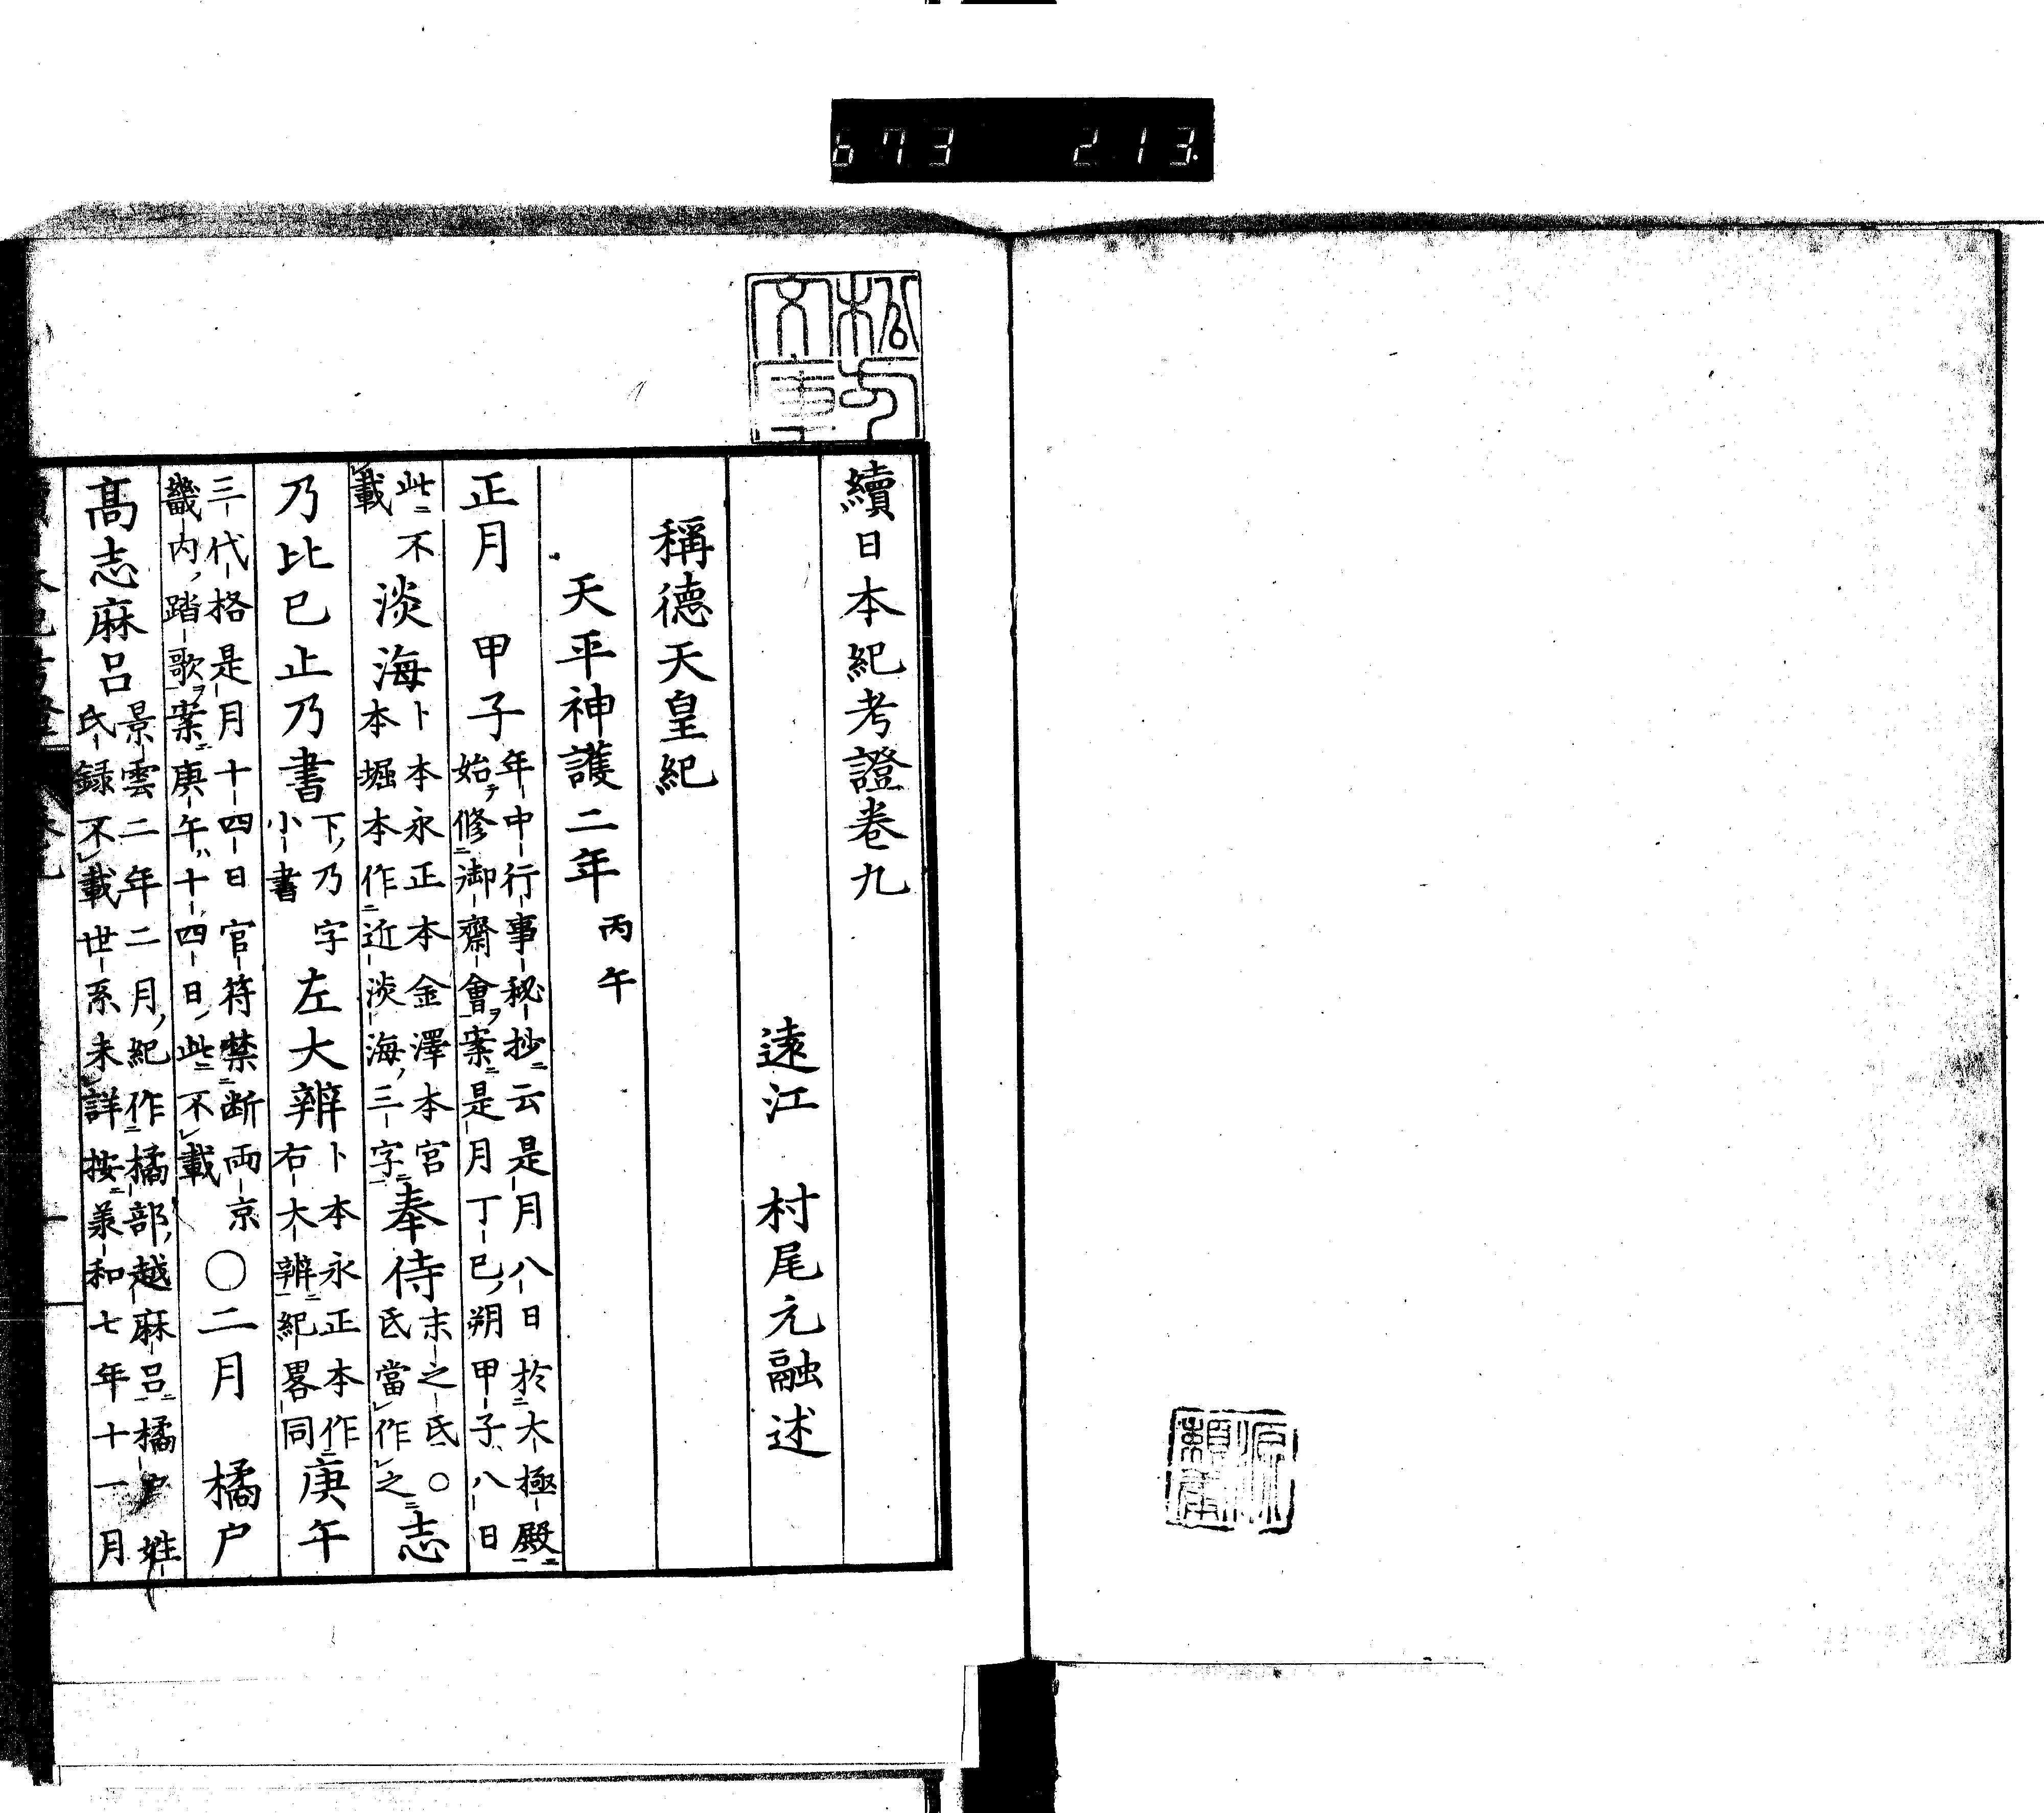 673 213
續日本紀考證卷九
遠江 村尾元融述
稱德天皇紀
天平神護二年丙午
正月 甲子年中行事秘抄云是月八日於大極殿
始テ修御齋會ヲ案是月丁巳朔甲子八日
此不
載
淡海卜本永正本金澤本宮
本堀本作近淡海三字
奉侍末之氐○
氐當作之
志
乃比已止乃書下乃字
小書
左大辨卜本永正本作
右大辨紀畧同
庚午
三代格是月十四日官符禁断両京
畿内踏歌ヲ案庚午十四日此不載
○二月 橘户
髙志麻呂景雲二年二月紀作橘部越麻呂橘户姓
氏録不載世系未詳按承和七年十一月